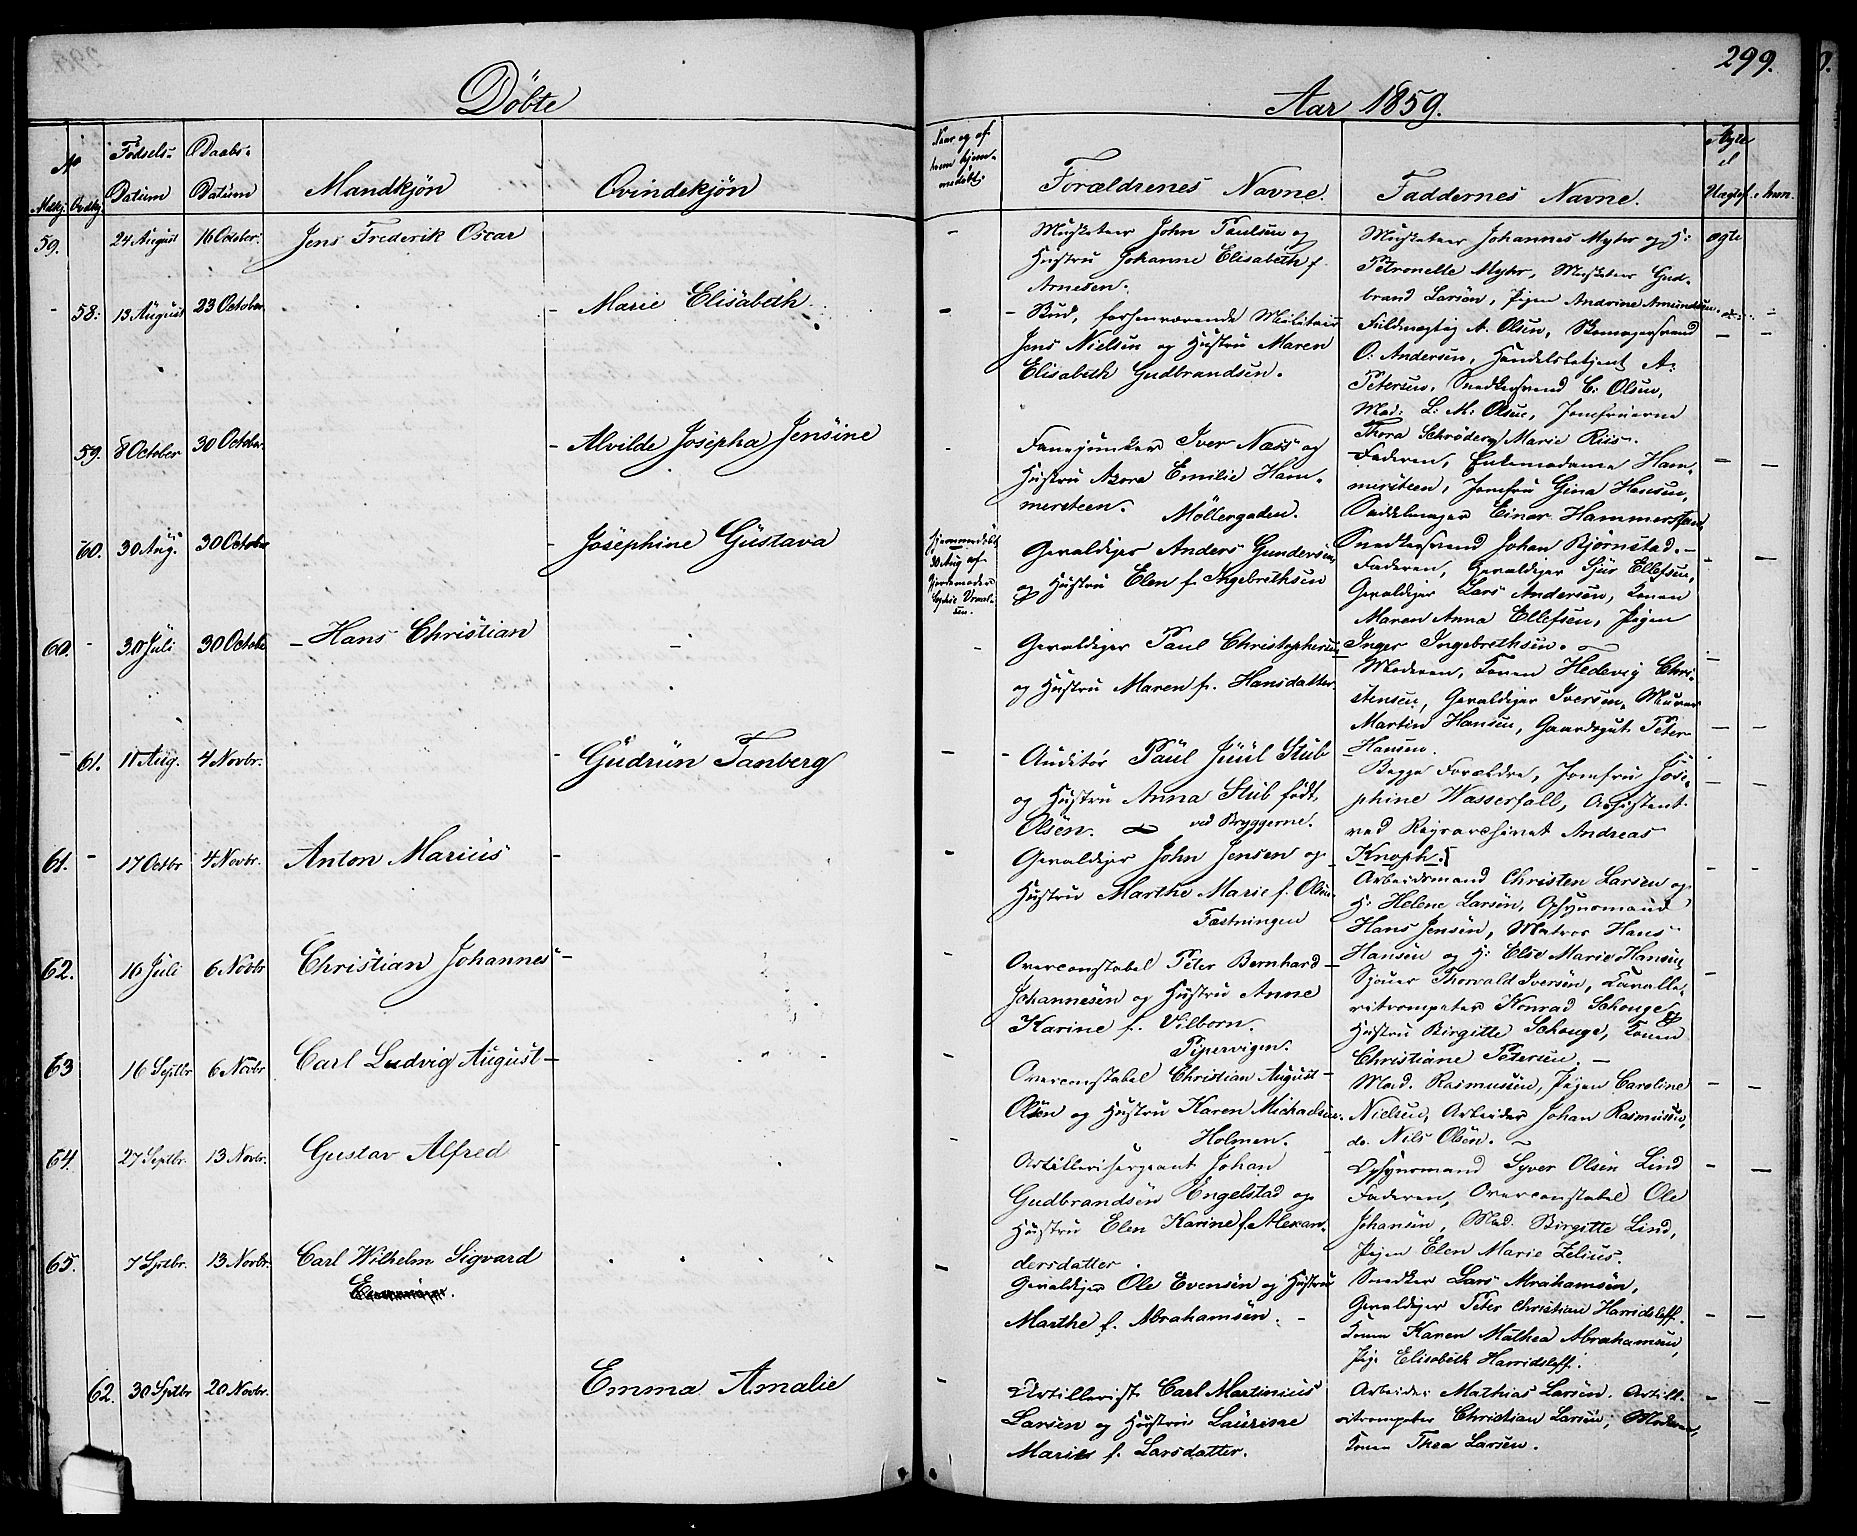 299.
Döbte
Aar 1859.
No
Mdkj. Qvdkj.
Fødsels-
Datum
Daabs-
Datum
Mandkjön
Qvindekjön
Naar og af
hvem hjem-
medøbt.
Forældrenes Navne.
Faddernes Navne.
Ægte
el.
Uægte.
Anm.
59. 24 August 16 October. Jens Frederik Oscar
Musketeer John Paulsen og
Hustru Johanne Elisabeth f.
Arnesen.
Musketeer Johannes Myhr og H:
Petronelle Myhr, Musketeer Gud-
brand Larsen, Pigen Andrine Amundsen.
ægte
58. 13 August 23 October Marie Elisabeth
Bud, forhenværende Militair
Jens Nielsen og Hustru Maren
Elisabeth Gudbrandsen.
Fuldmægtig A. Olsen, Skomagersvend
O. Andersen, Handelsbetjent A.
Petersen, Snedkersvend C. Olsen,
Mad: L. M. Olsen, Jomfruerne
Thora Schrøder og Marie Riis.
59. 8 October 30 October. Alvilde Josepha Jensine
Fanejunker Iver Næss og
Hustru Azora Emilie Ham-
mersteen.
Möllergaden.
Faderen, Enkemadame Ham-
mersteen, Jomfru Gina Hansen,
Sadelmager Einar Hammersteen,
Snedkersvend Johan Bjørnstad.
60. 30 Aug. 30 October Josephine Gustava
Hjemmedøbt
30 Aug af
Gjordemoder
Sophie
Gevaldiger Anders Gundersen
og Hustru Elen f. Ingebrethsen
Faderen, Gevaldiger Sjur Ellefsen,
Gevaldiger Lars Andersen, Konen
Maren Anna Ellefsen, Pigen
Inger Ingebrethsen.
60. 30 Juli 30 October Hans Christian
Gevaldiger Paul Christophersen
og Hustru Maren f. Hansdatter.
Moderen, Konen Hedevig Chri-
stensen, Gevaldiger Iversen, Murer
Martin Hansen, Gaardsgut Peter
Hansen.
61. 11 Aug. 4 Novbr. Gudrun Tanberg
Auditör Paul Juul Stub
og Hustru Anna Stub født
Olsen. ved Bryggerne.
Begge Forældre, Jomfru Jose-
phine Wasserfall, Assistent
ved Andreas
Knoph.
61. 17 Octbr 4 Novbr. Anton Marius
Gevaldiger John Jensen og
Hustru Marthe Marie f. Olsen
Fæstningen
Arbeidsmand Christen Larsen og
H: Helene Larsen, Opsynsmand
Hans Jensen, Matros Hans
Hansen og H: Else Marie Hansen
62. 16 Juli 6 Novbr Christian Johannes
Overconstabel Peter Bernhard
Johannesen og Hustru Anne
Karine f. Vilborn.
Pipervigen.
Sjouer Thorvald Iversen, Cavalle-
ritrompeter Konrad Schouge og
Hustru Birgitte Schouge, Konen
Christiane Petersen.
63 16 Septbr 6 Novbr Carl Ludvig August
Overconstabel Christian August
Olsen og Hustru Karen Michaelsen.
Holmen.
Mad. Rasmussen, Pigen Caroline
Nielsen, Arbeider Johan Rasmussen,
do. Nils Olsen.
64. 27 Septbr. 13 Novbr. Gustav Alfred
Artillerisergeant Johan
Gudbrandsen Engelstad og
Hustru Elen Karine f. Alexan-
dersdatter.
Opsynsmand Syver Olsen Lind
Faderen, Overconstabel Ole
Johansen, Mad. Birgitte Lind,
Pigen Elen Marie Zelius.
65. 7 Septbr. 13 Novbr. Carl Wilhelm Sigvard
Gevaldiger Ole Evensen og Hustru
Marthe f. Abrahamsen.
Snedker Lars Abrahamsen,
Gevaldiger Peter Christian Harridsleff.
Konen Karen Mathea Abrahamsen,
Pige Elisabeth Harridsleff.
62. 30 Septbr 20 Novbr. Emma Amalie
Artillerist Carl Martinius
Larsen og Hustru Laurine
Marie f. Larsdatter.
Arbeider Mathias Larsen, Artill-
ritrompeter Christian Larsen, Moderen,
Konen Thea Larsen.